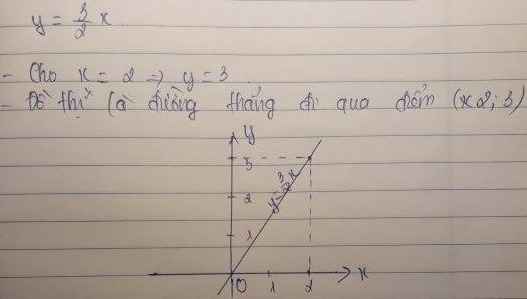 y = 3/2 x
- Cho x = 2 => y = 3.
- Đồ thị là đường thẳng đi qua điểm (x 2; 3)
y
3
y = 3/2 x
2
1
O 1 2 x